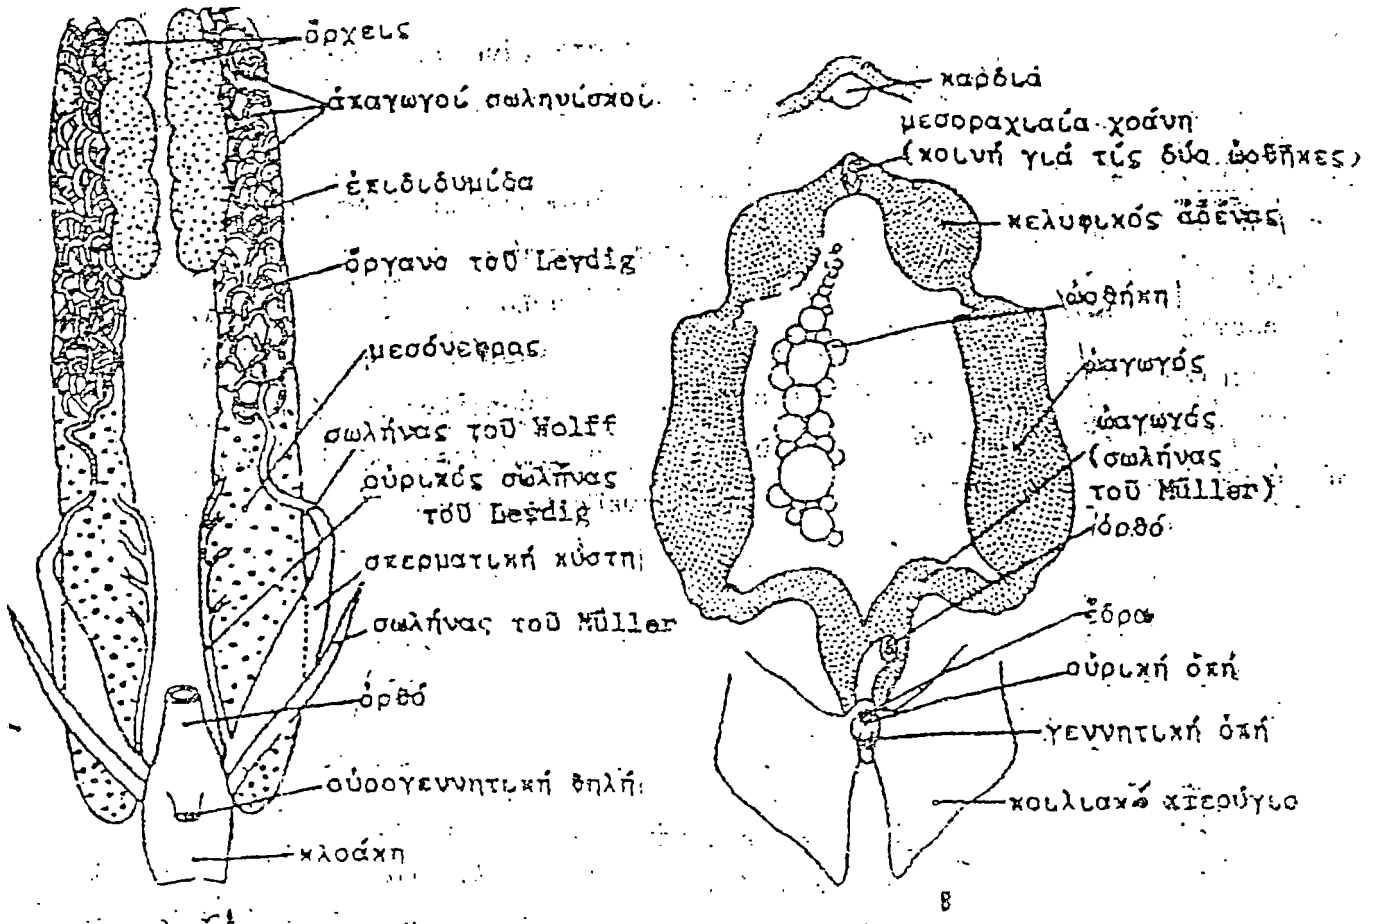 ὄρχεις
ἀπαγωγοί σωληνίσκοι
ἐπιδιδυμίδα
ὄργανο τοῦ Leydig
μεσόνεφρος
σωλήνας τοῦ Wolff
οὐρικός σωλήνας
τοῦ Leydig
σπερματική κύστη
σωλήνας τοῦ Müller
ὀρθό
οὐρογεννητική θηλή
κλοάκη
καρδιά
μεσοραχιαία χοάνη
(κοινή γιά τίς δύο ὠοθῆκες)
κελυφικός ἀδένας
ὠοθήκη
ὠαγωγός
ὠαγωγός
(σωλήνας
τοῦ Müller)
ὀρθό
ἕδρα
οὐρική ὀπή
γεννητική ὀπή
κοιλιακό πτερύγιο
B